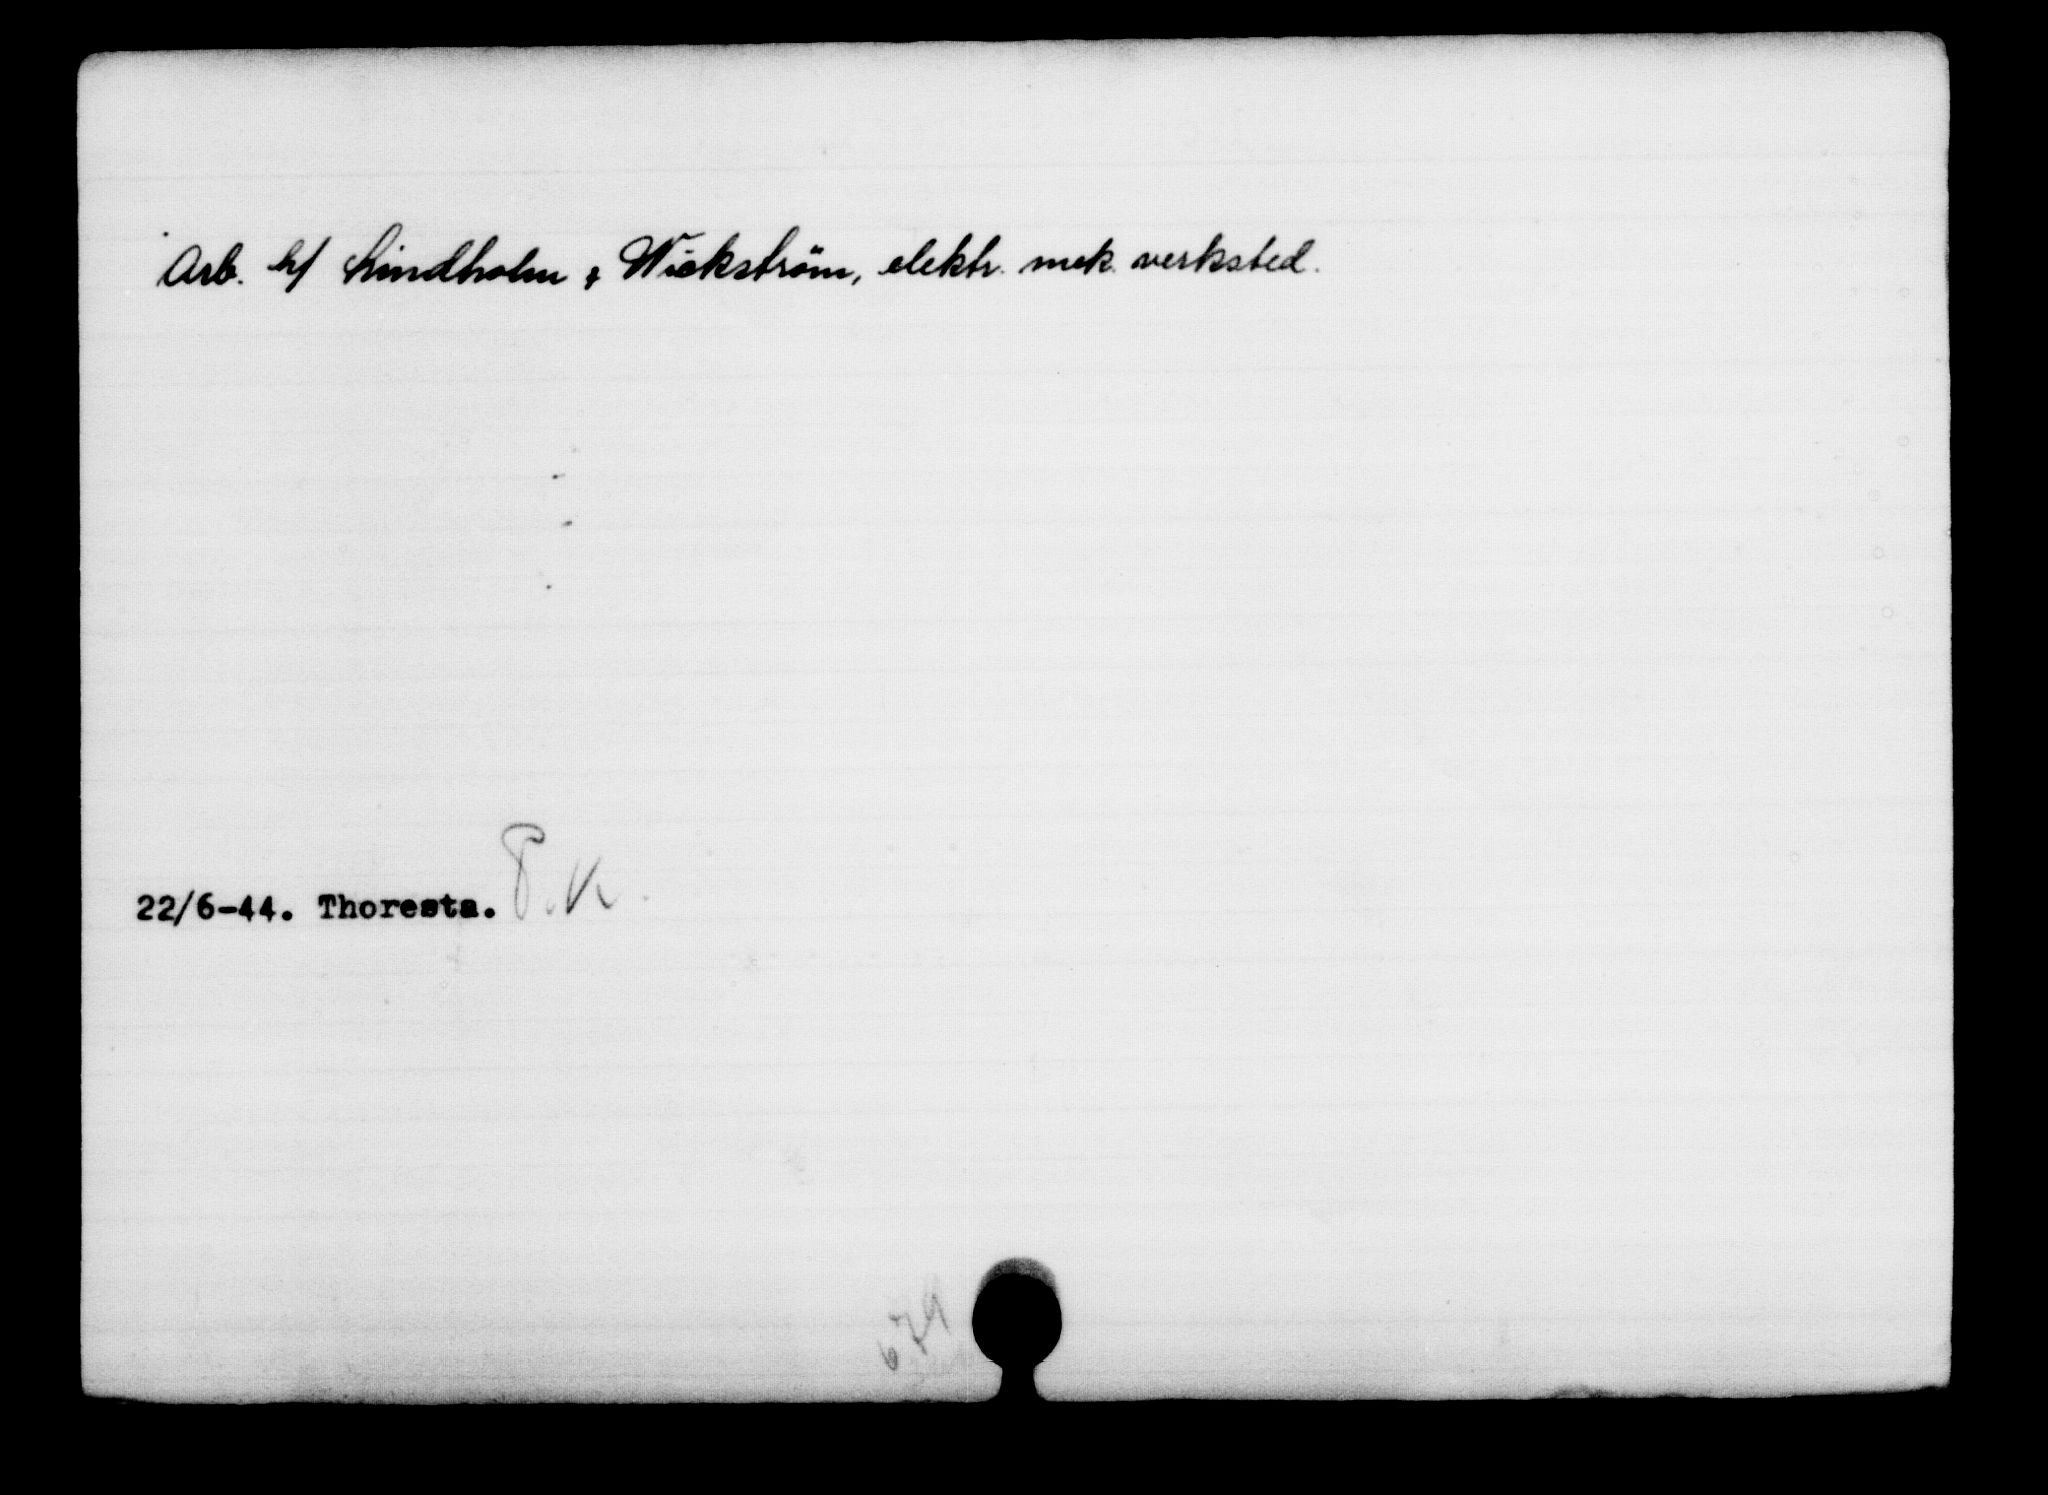 Arb. h/ Lindholm & Wickström, elektr. mek. verksted.
22/6-44. Thoresta. P.K.
679